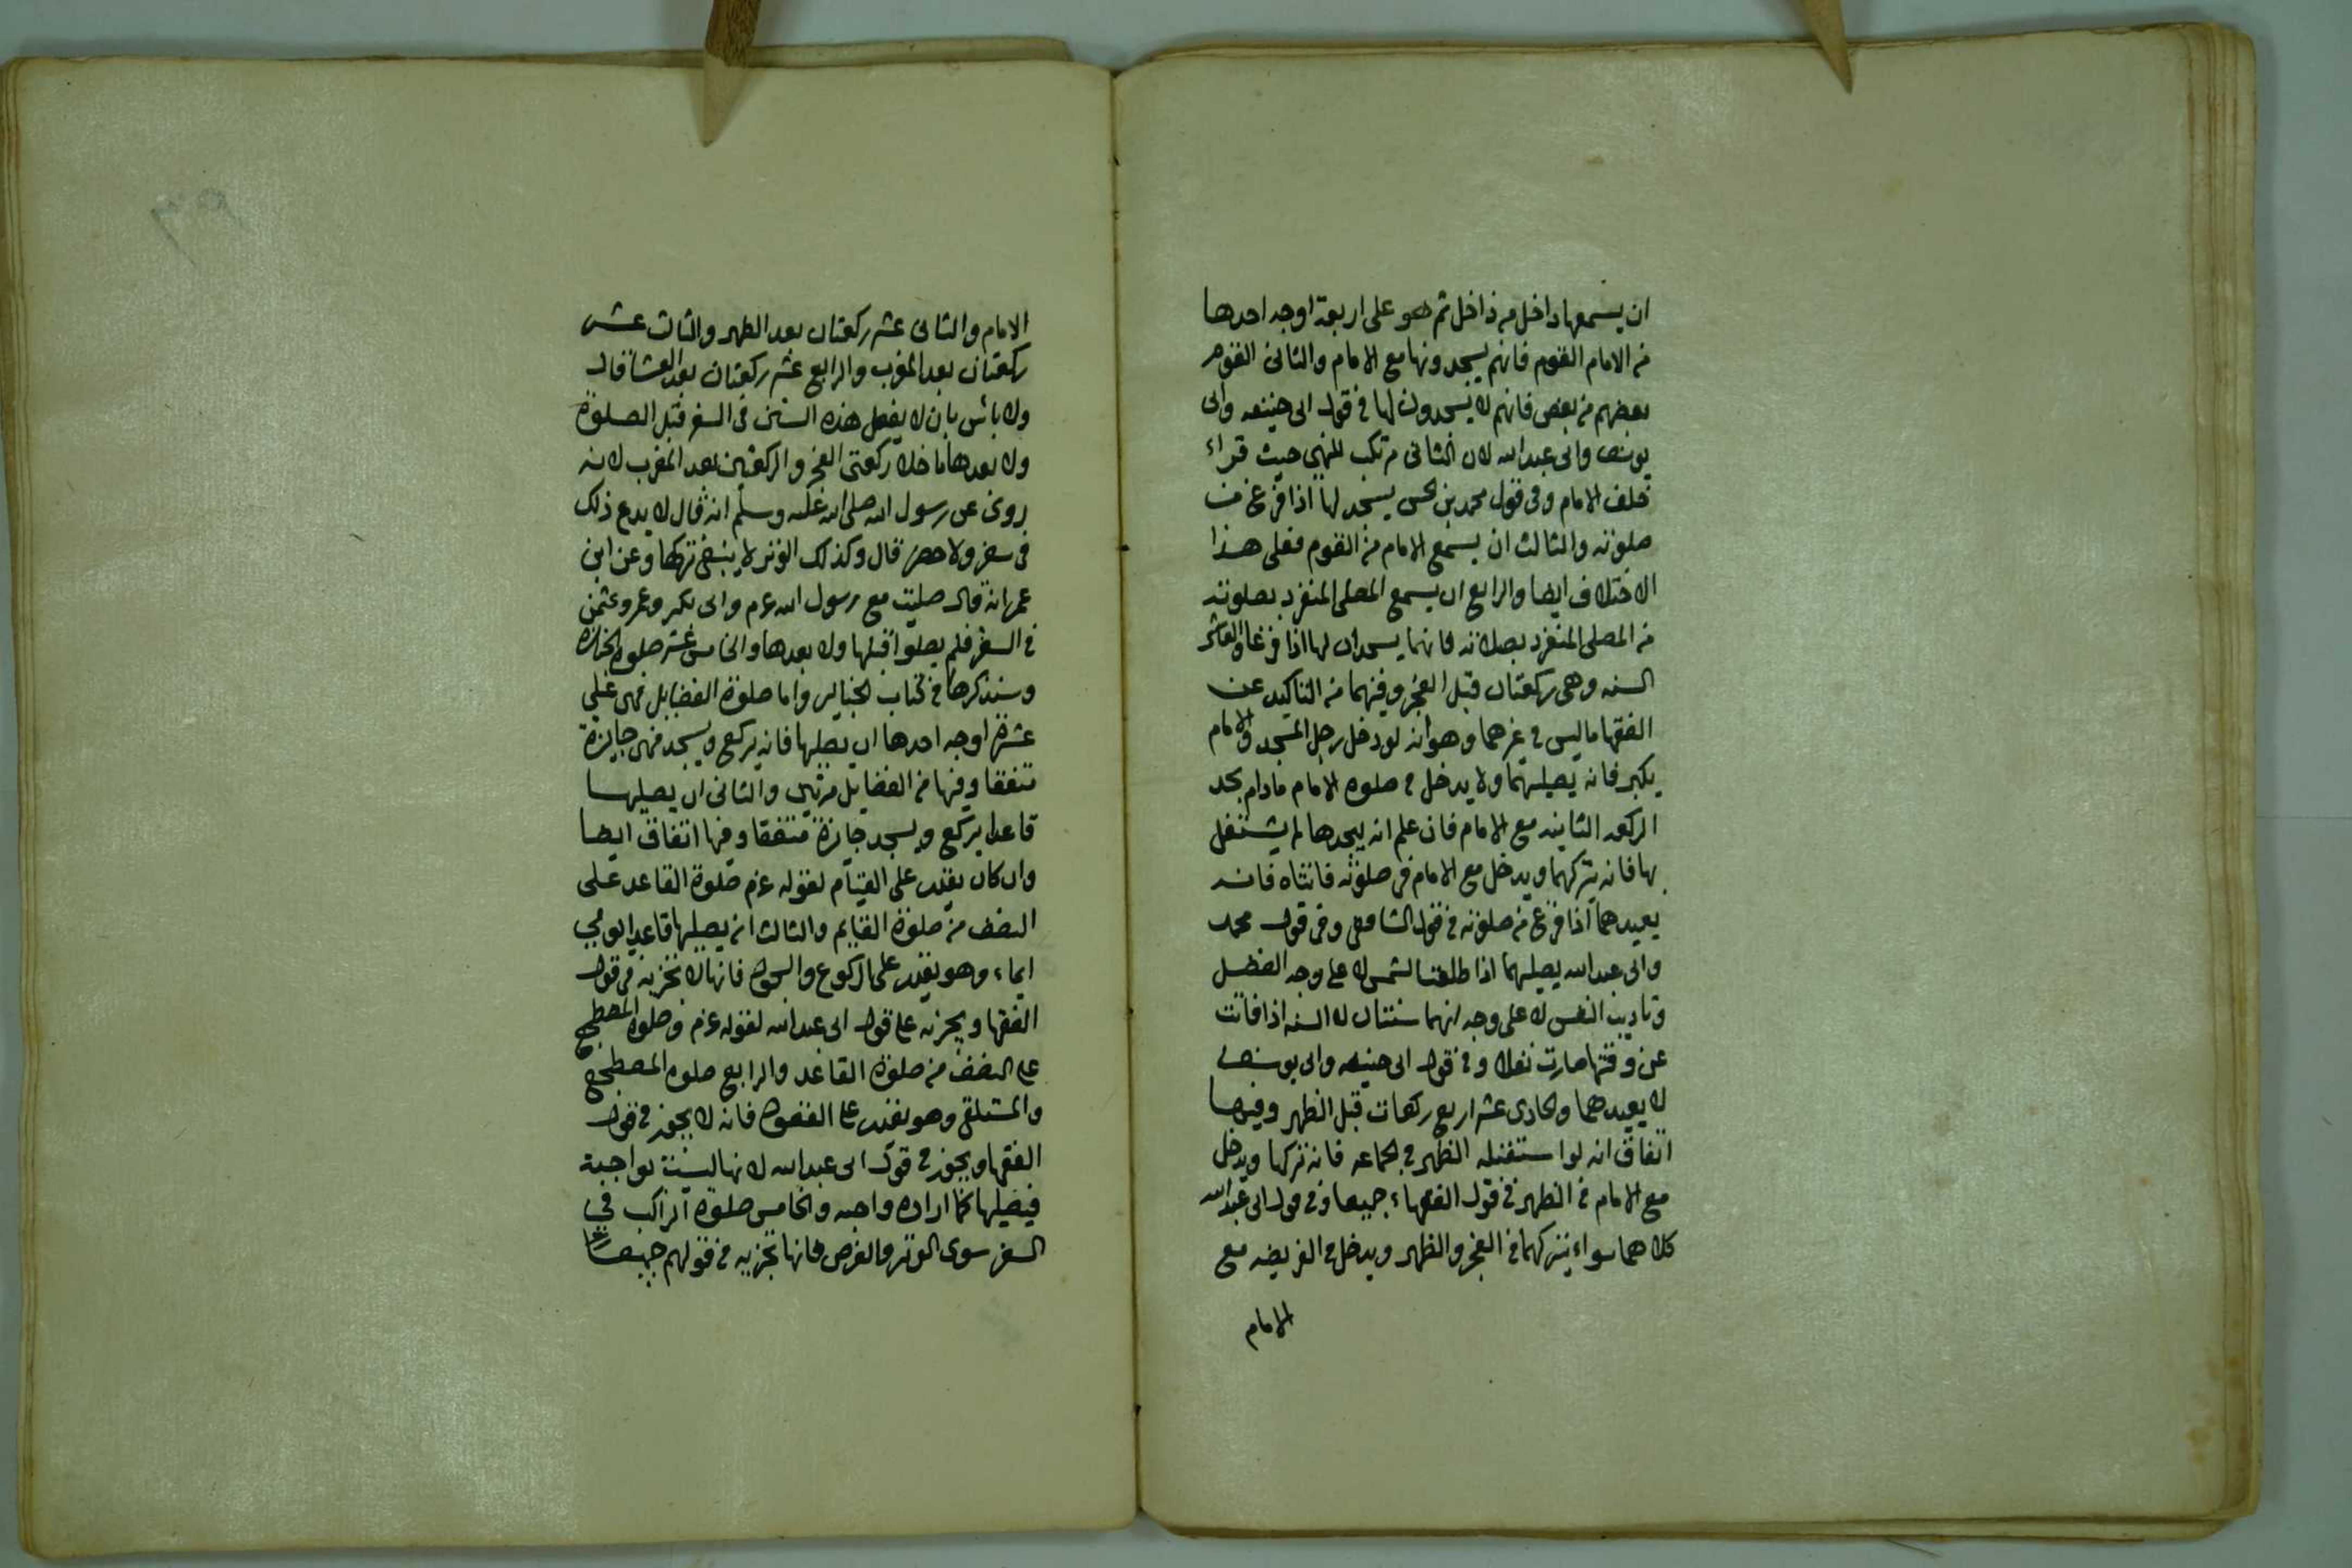 ان يسمعها داخل من داخل ثم هو على اربعة اوجه احدها
من الامام القوم فانهم يسجدونها مع الامام والثانى القوم
بعضهم من بعض فانهم لا يسجدون لها فى قول ابى حنيفه وابى
يوسف وابى عبدالله لان الثانى مرتكب للنهى حيث قراء
خلف الامام وفى قول محمد بن الحسن يسجد لها اذا فرغ من
صلوته والثالث ان يسمع الامام من القوم فعلى هذا
الاختلاف ايضا والرابع ان يسمع المصلى المنفرد بصلوته
من المصلى المنفرد بصلاته فانهما يسجدان لها اذا فرغا والعاشر
السنه وهى ركعتان قبل الفجر وفيهما من التاكيد عن
الفقها ماليس فى غيرهما وهو انه لو دخل رجل المسجد والامام
يكبر فانه يصليهما ولا يدخل فى صلوه الامام مادام يجد
الركعه الثانيه مع الامام فان علم انه يجدها لم يشتغل
بها فانه يتركهما ويدخل مع الامام فى صلوته فاتتاه فانه
يعيدهما اذا فرغ من صلوته فى قول الشافعى وفى قول محمد
وابى عبدالله يصليهما اذا طلعت الشمس لا على وجه الفضل
وتاديب النفس لا على وجه انهما سنتان لان السنه اذا فاتت
عن وقتها صارت نفلا وفى قول ابى حنيفه وابى يوسف
لا يعيدهما والحادى عشر اربع ركعات قبل الظهر وفيها
اتفاق انه لو استقبله الظهر فى الجماعه فانه تركها ويدخل
مع الامام فى الظهر فى قول الفقهاء جميعا وفى قول ابى عبدالله
كلاهما سواء يتركهما فى الفجر والظهر ويدخل فى الفريضه مع
الامام
الامام والثانى عشر ركعتان بعد الظهر والثالث عشر
ركعتان بعد المغرب والرابع عشر ركعتان بعد العشا قال
ولا باس بان لا يفعل هذه السنن فى السفر قبل الصلوة
ولا بعدها ما خلا ركعتى الفجر والركعتين بعد المغرب لانه
روى عن رسول الله صلى الله عليه وسلم انه قال لا يدع ذلك
فى سفر ولا حضر قال وكذلك الوتر لا ينبغى تركها وعن ابن
عمر انه قال صليت مع رسول الله عم وابى بكر وعمر وعثمن
فى السفر فلم يصلوا قبلها ولا بعدها والخامس عشر صلوه الجنازه
وسنذكرها فى كتاب الجنايز واما صلوة الفضايل فهى على
عشرة اوجه احدها ان يصليها فانه يركع ويسجد فهى جايزة
متفقا وفيها من الفضايل مرتين والثانى ان يصليها
قاعدا يركع ويسجد جايزة متفقا وفيها اتفاق ايضا
وان كان يقدر على القيام لقوله عم صلوة القاعد على
النصف من صلوة القايم والثالث ان يصليها قاعدا يومى
ايماء وهو يقدر على الركوع والسجود فانها لا تجزيه فى قول
الفقها ويجزيه على قول ابى عبدالله لقوله عم وصلوه المضطجع
على النصف من صلوة القاعد والرابع صلوه المضطجع
والمستلقى وهو يقدر على القعود فانه لا يجوز فى قول
الفقها ويجوز فى قول ابى عبدالله لانها ليست بواجبة
فيصليها كما اراده واجبه والخامس صلوة الراكب فى
السفر سوى الوتر والفرض فانها تجزيه فى قولهم جميعا